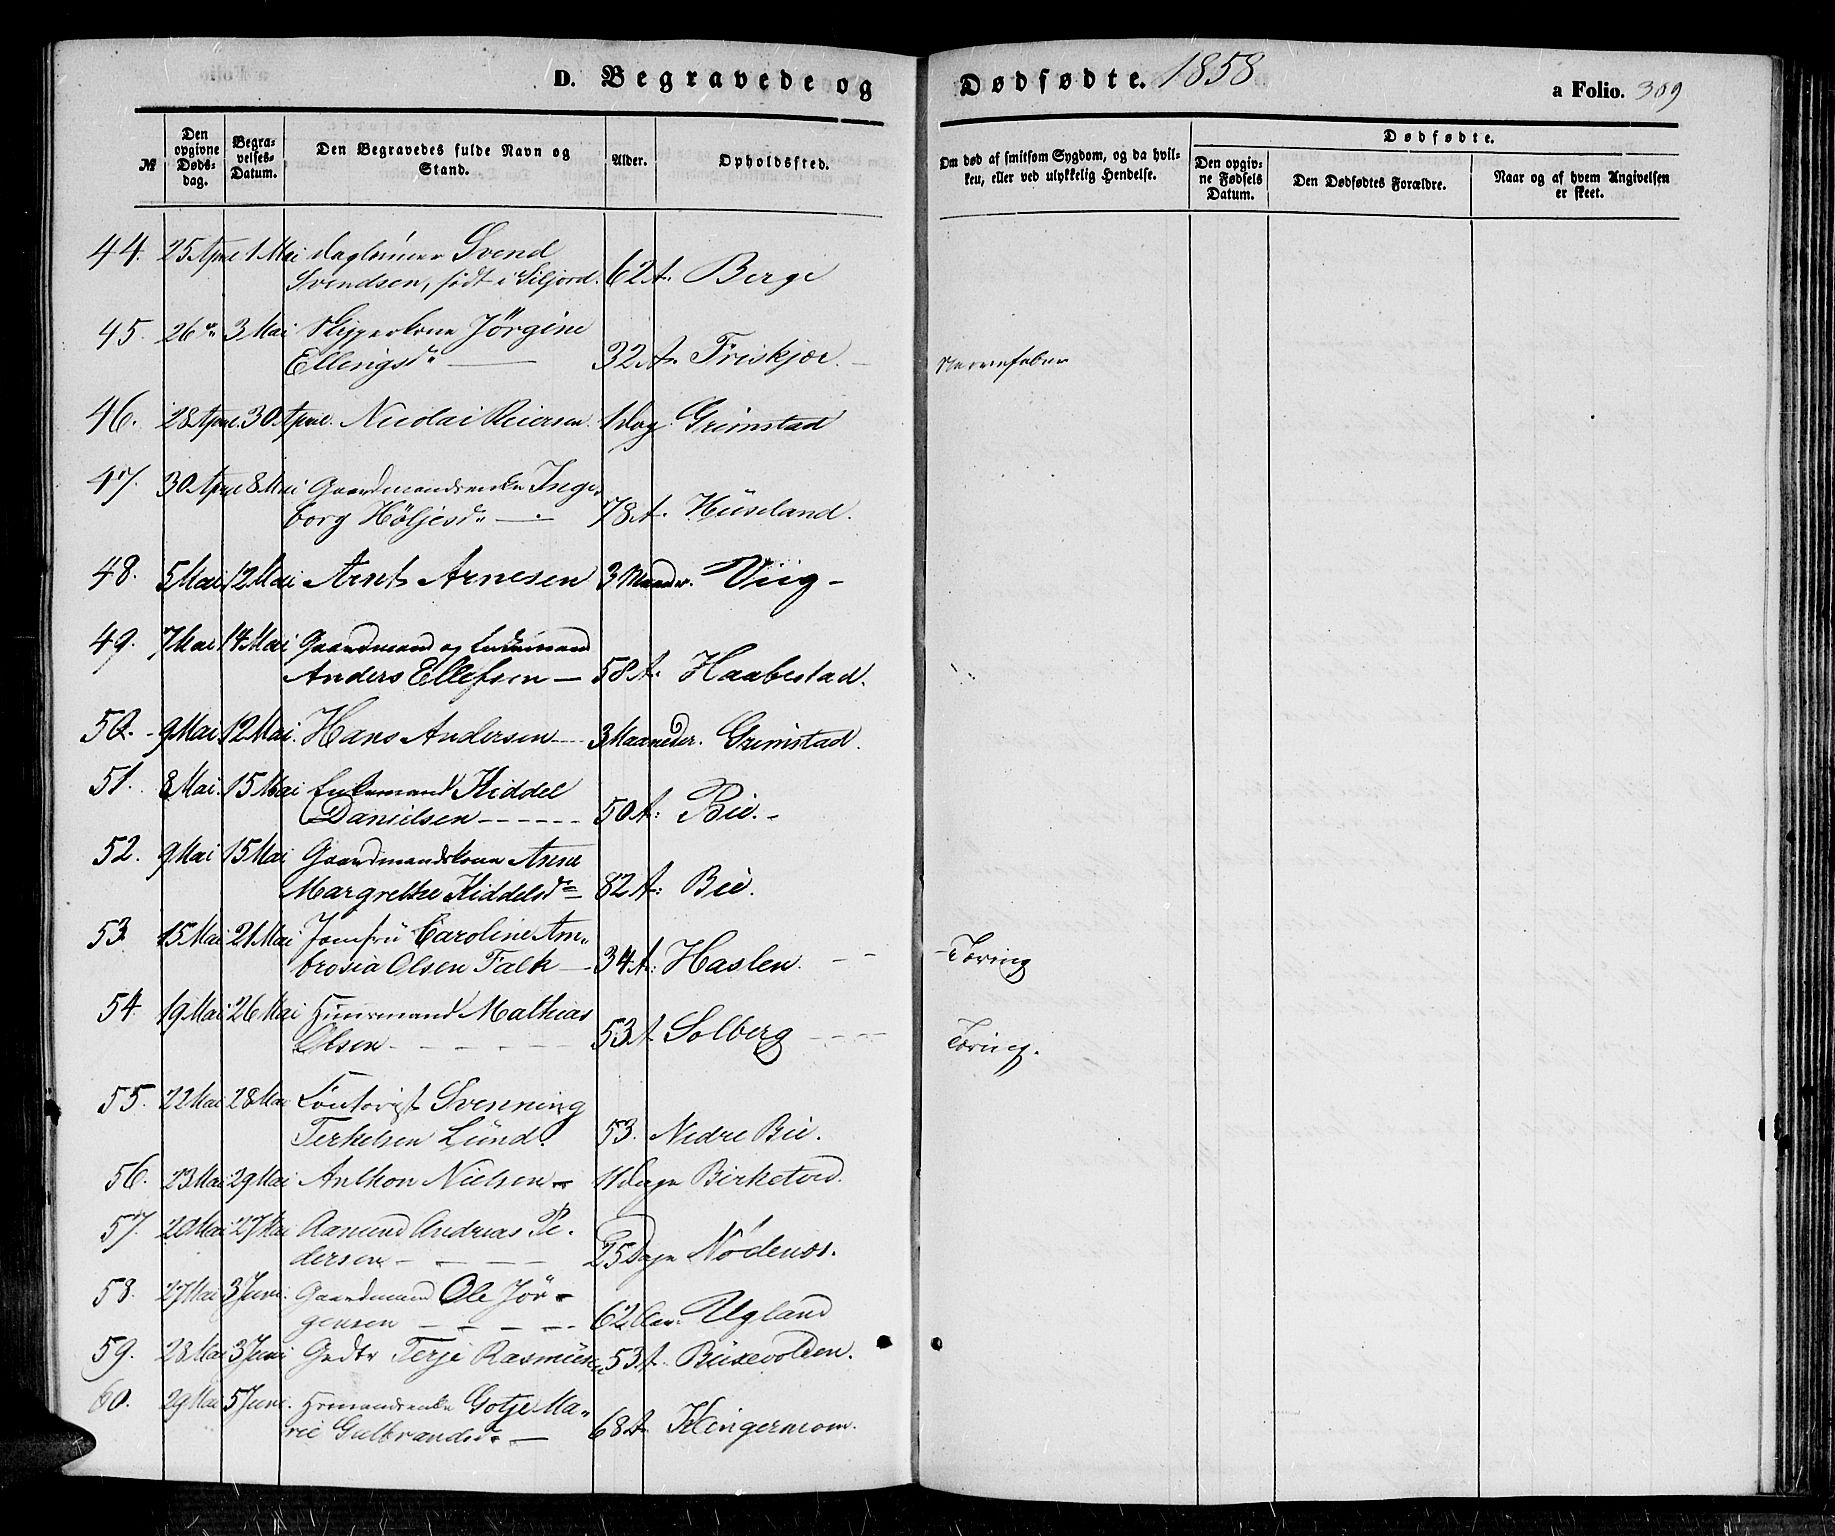 D. Begravede og Dødfødte. 1858
a Folio. 309
№ Den opgivne Døds-dag. Begra-velses-Datum. Den Begravedes fulde Navn og Stand. Alder. Opholdssted. Om død af smitsom Sygdom, og da hvil-ken, eller ved ulykkelig Hendelse. Dødfødte. Den opgiv-ne Fødsels Datum. Den Dødfødtes Forældre. Naar og af hvem Angivelsen er skeet.
44. 25 April 1 Mai Daglønner Svend
Svendsen, født i Siljord. 62 A. Berge
45. 26 " 3 Mai Skipperkone Jörgine
Ellingsd. 32 A. Friskjær. Nervefeber
46. 28 April. 30 April. Nicolai Reiersen. 1 Dag Grimstad
47. 30 April 8 Mai Gaardmandsenke Inge-
borg Höljesd. 78 A. Huseland.
48. 5 Mai 12 Mai Arnt Arnesen 3 Maaneder. Viig
49. 7 Mai 14 Mai Gaardmand og Enkemand
Anders Ellefsen 58 A. Haabestad.
50. 9 Mai 12 Mai. Hans Andersen 3 Maaneder. Grimstad.
51. 8 Mai. 15 Mai Enkemand Kiddel
Danielsen 50 A: Bie.
52. 9 Mai 15 Mai Gaardmandskone Anne
Margrethe Kiddelsd. 82 A: Bie.
53. 15 Mai 21 Mai Jomfru Caroline Am-
brosia Olsen Falk 34 A: Haslen. Tæring
54. 19 Mai 26 Mai Huusmand Mathias
Olsen 53 A Solberg Tæring.
55. 22 Mai 28 Mai Svenning
Terkelsen Lund. 53. Nedre Bie.
56. 23 Mai 29 Mai Anthon Nielsen 11 Dage Birketved.
57. 20 Mai 27 Mai Aamund Andreas Pe-
dersen 25 Dage Nødenæs.
58. 27 Mai 3 Juni. Gaardmand Ole Jör-
gensen 62 Aar. Ugland
59. 28 Mai 3 Juni Terje Rasmusen 53 A. Buxevolden.
60. 29 Mai 5 Juni. Hsmandsenke Gotje Ma-
rie Gulbrandsd. 68 A. Klingermoen.